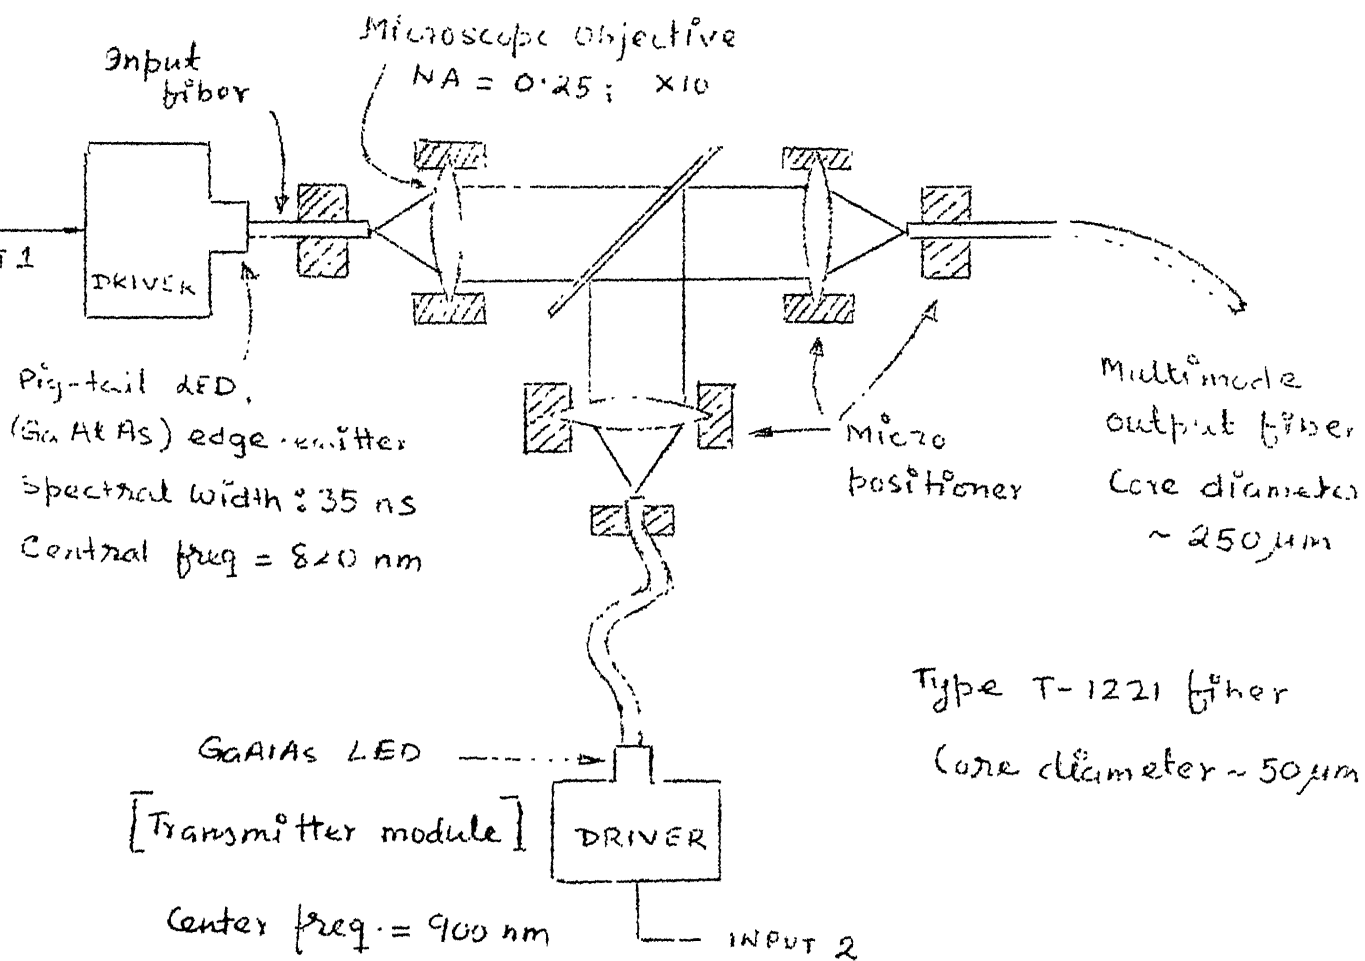 Microscope objective
NA = 0.25; X10
Input
fiber
T 1
DRIVER
Pig-tail LED,
(Ga Al As) edge-emitter
Spectral width: 35 ns
Central freq = 820 nm
Micro
positioner
Multimode
output fiber
Core diameter
~ 250 μm
Type T-1221 fiber
Core diameter ~ 50 μm
GaAlAs LED
[Transmitter module]
DRIVER
Center freq. = 900 nm
INPUT 2